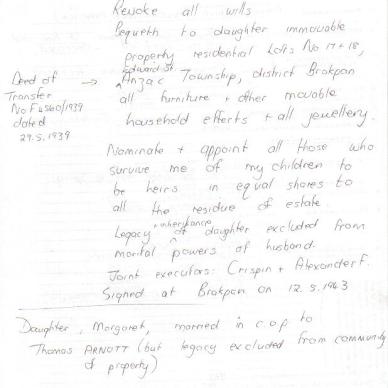 Revoke all wills
Bequeth to daughter immovable
property residential Lots No 17 + 18,
Edward St.
Anzac Township, district Brakpan
all furniture + other movable
household efferts + all jewellery.
Deed of
Transfer
No F4560/1939
dated
29.5.1939
Nominate + appoint all those who
survive me of my children to
be heirs in equal shares to
all the residue of estate.
Legacy + inheritance of daughter excluded from
marital powers of husband.
Joint executors: Crispin + Alexander F.
Signed at Brakpan on 12.5.1943
Daughter, Margaret, married in c.o.p to
Thomas ARNOTT (but legacy excluded from community
of property)